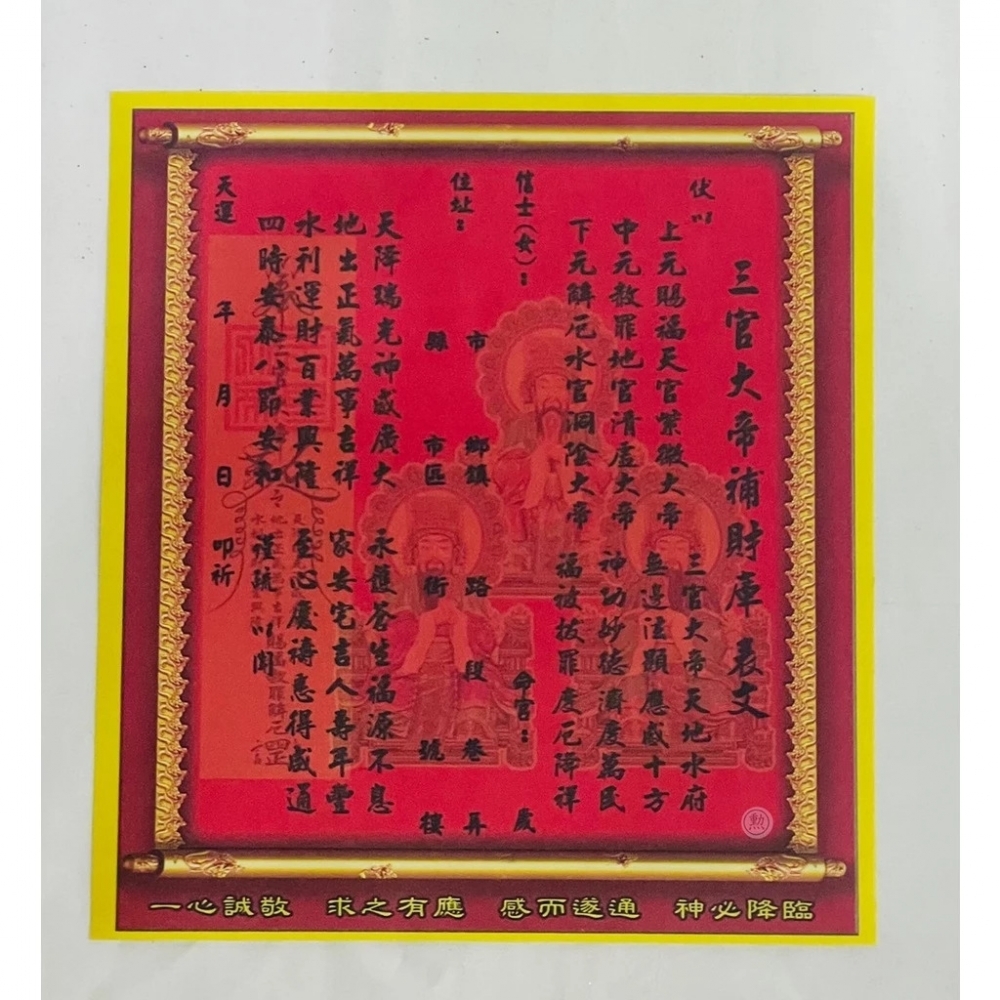 三官大帝補財庫 表文
伏以
上元賜福天官紫微大帝 三官大帝天地水府
中元赦罪地官清虛大帝 無邊法顯應感十方
下元解厄水官洞陰大帝 神功妙德濟度萬民
福被拔罪度厄降祥
信士(女): 命宮: 歲
住址: 市 鄉鎮 路 段 巷 弄
縣 市區 街 號 樓
天降瑞光神威廣大 永護蒼生福源不息
地出正氣萬事吉祥 家安宅吉人壽年豐
水利運財百業興隆 至心虔禱悉得感通
四時安泰八節安和 謹疏以聞
天運 年 月 日 叩祈
勲
一心誠敬 求之有應 感而遂通 神必降臨